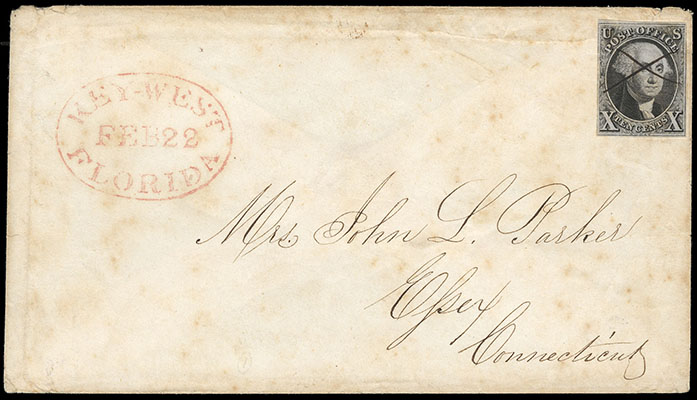 U S
POST OFFICE
X TEN CENTS X
KEY-WEST
FEB 22
FLORIDA
Mrs. John L. Parker
Essex
Connecticut